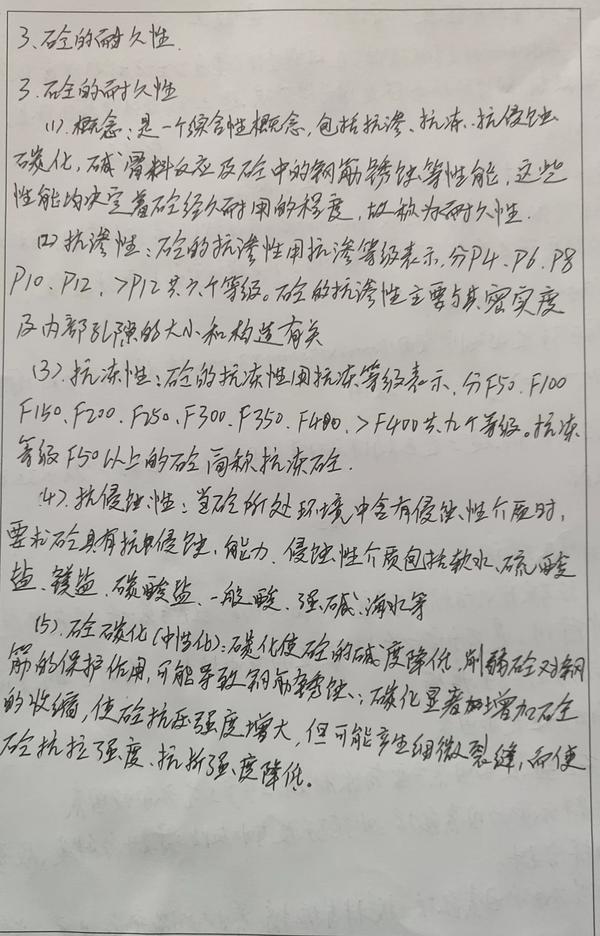 3、砼的耐久性.
3.砼的耐久性
(1).概念:是一个综合性概念,包括抗渗、抗冻、抗侵蚀
碳化,碱骨料反应及砼中的钢筋锈蚀等性能,这些
性能均决定着砼经久耐用的程度,故称为耐久性.
(2)抗渗性:砼的抗渗性用抗渗等级表示,分P4、P6、P8
P10、P12、>P12共六个等级。砼的抗渗性主要与其密实度
及内部孔隙的大小和构造有关
(3).抗冻性:砼的抗冻性用抗冻等级表示,分F50、F100
F150、F200、F250、F300、F350、F400、>F400共九个等级。抗冻
等级F50以上的砼简称抗冻砼.
(4).抗侵蚀性:当砼所处环境中含有侵蚀性介质时,
要求砼具有抗侵蚀能力.侵蚀性介质包括软水、硫酸
盐、镁盐、碳酸盐、一般酸、强碱、海水等
(5).砼碳化(中性化):碳化使砼的碱度降低,削弱砼对钢
筋的保护作用,可能导致钢筋锈蚀;碳化显著增加砼
的收缩,使砼抗压强度增大,但可能产生细微裂缝,而使
砼抗拉强度、抗折强度降低。